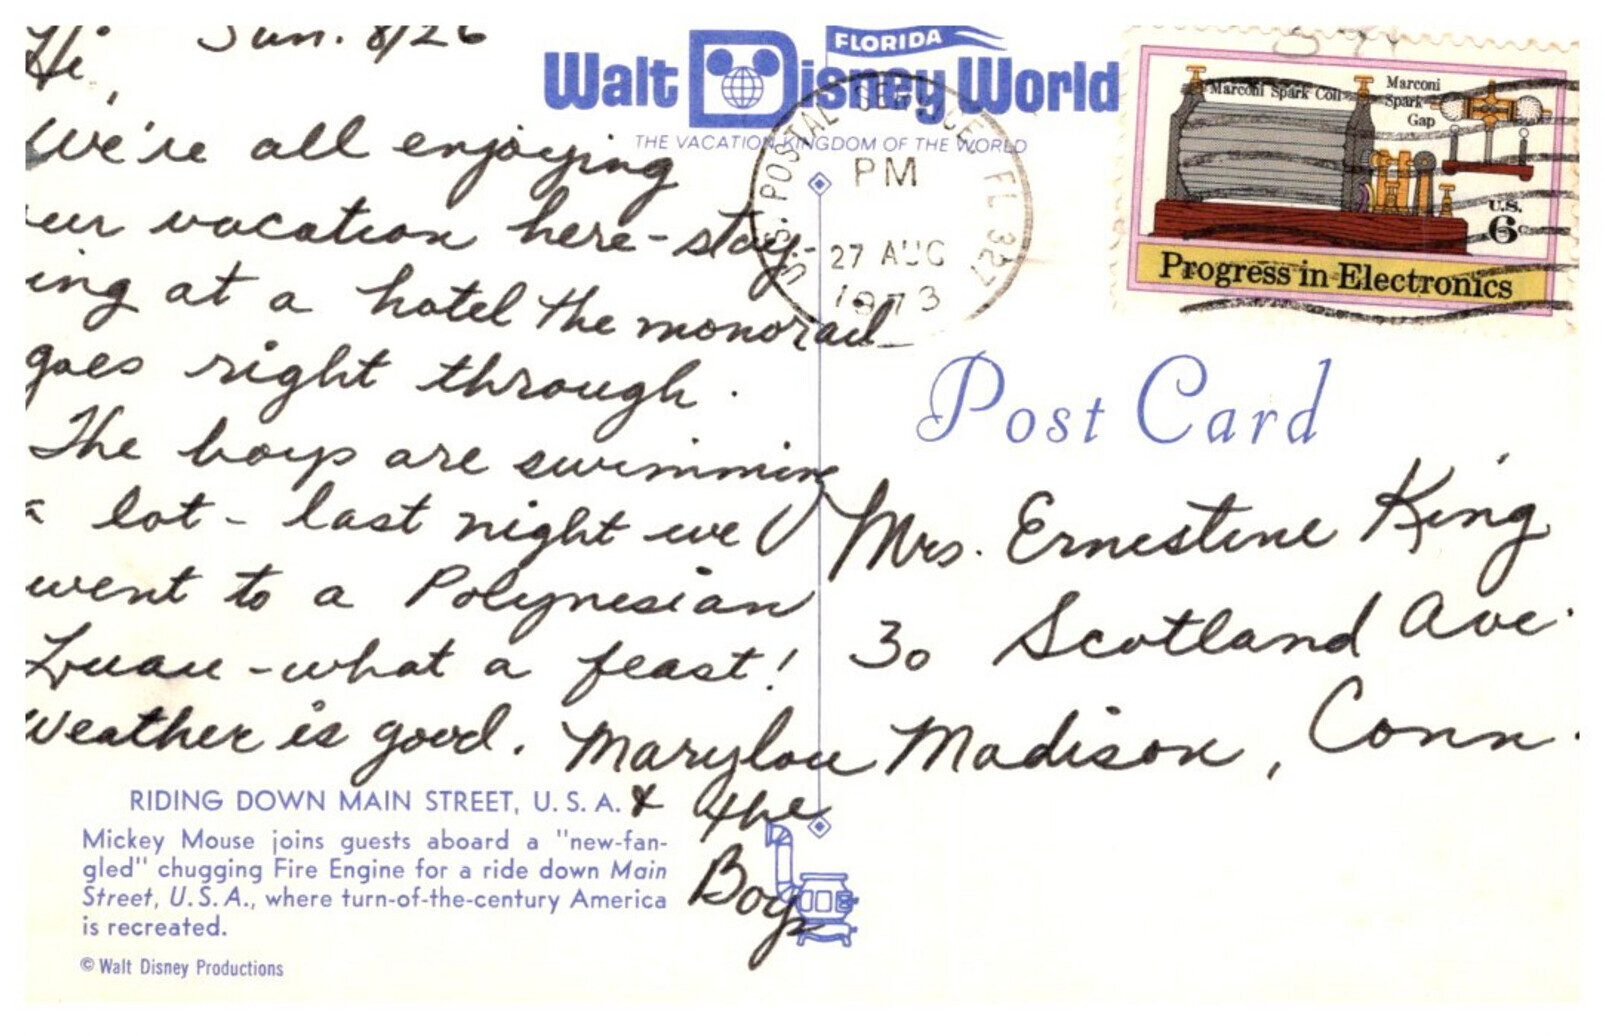 Sun. 8/26
Hi,
We're all enjoying
our vacation here - stay-
ing at a hotel the monorail
goes right through.
The boys are swimming
a lot - last night we
went to a Polynesian
Luau - what a feast!
Weather is good. Marylou
& the
Boys
RIDING DOWN MAIN STREET, U. S. A.
Mickey Mouse joins guests aboard a "new-fan-
gled" chugging Fire Engine for a ride down Main
Street, U. S. A., where turn-of-the-century America
is recreated.
© Walt Disney Productions
FLORIDA
Walt Disney World
THE VACATION KINGDOM OF THE WORLD
U.S. POSTAL SERVICE FL 327
PM
27 AUG
1973
Marconi Spark Coil
Marconi
Spark
Gap
U.S.
6c
Progress in Electronics
Post Card
Mrs. Ernestine King
30 Scotland Ave.
Madison, Conn.